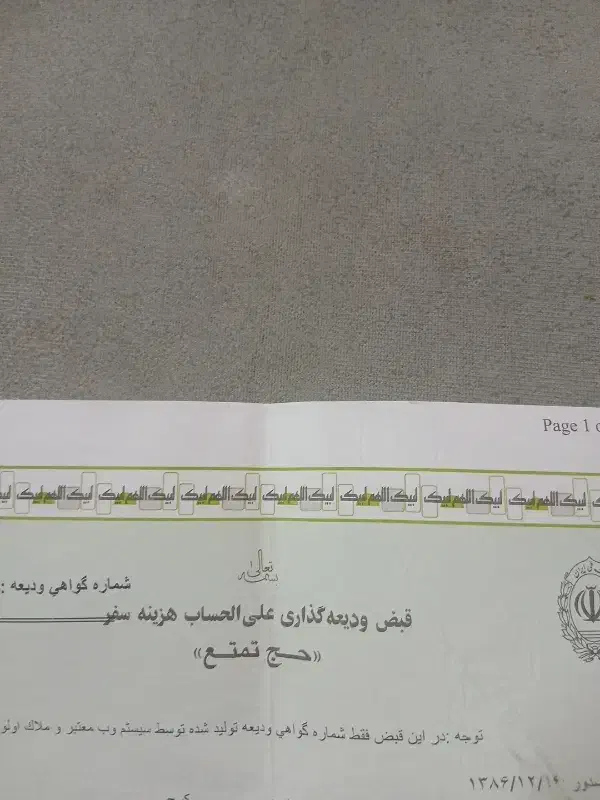 Page 1
لبیک اللهم لبیک لبیک اللهم لبیک لبیک اللهم لبیک لبیک اللهم لبیک لبیک اللهم لبیک لبیک اللهم لبیک
بسمه تعالی
شماره گواهي وديعه :
قبض ودیعه گذاری علی الحساب هزینه سفر
«حج تمتع»
توجه :در اين قبض فقط شماره گواهي وديعه توليد شده توسط سيستم وب معتبر و ملاك
۱۳۸۶/۱۲/